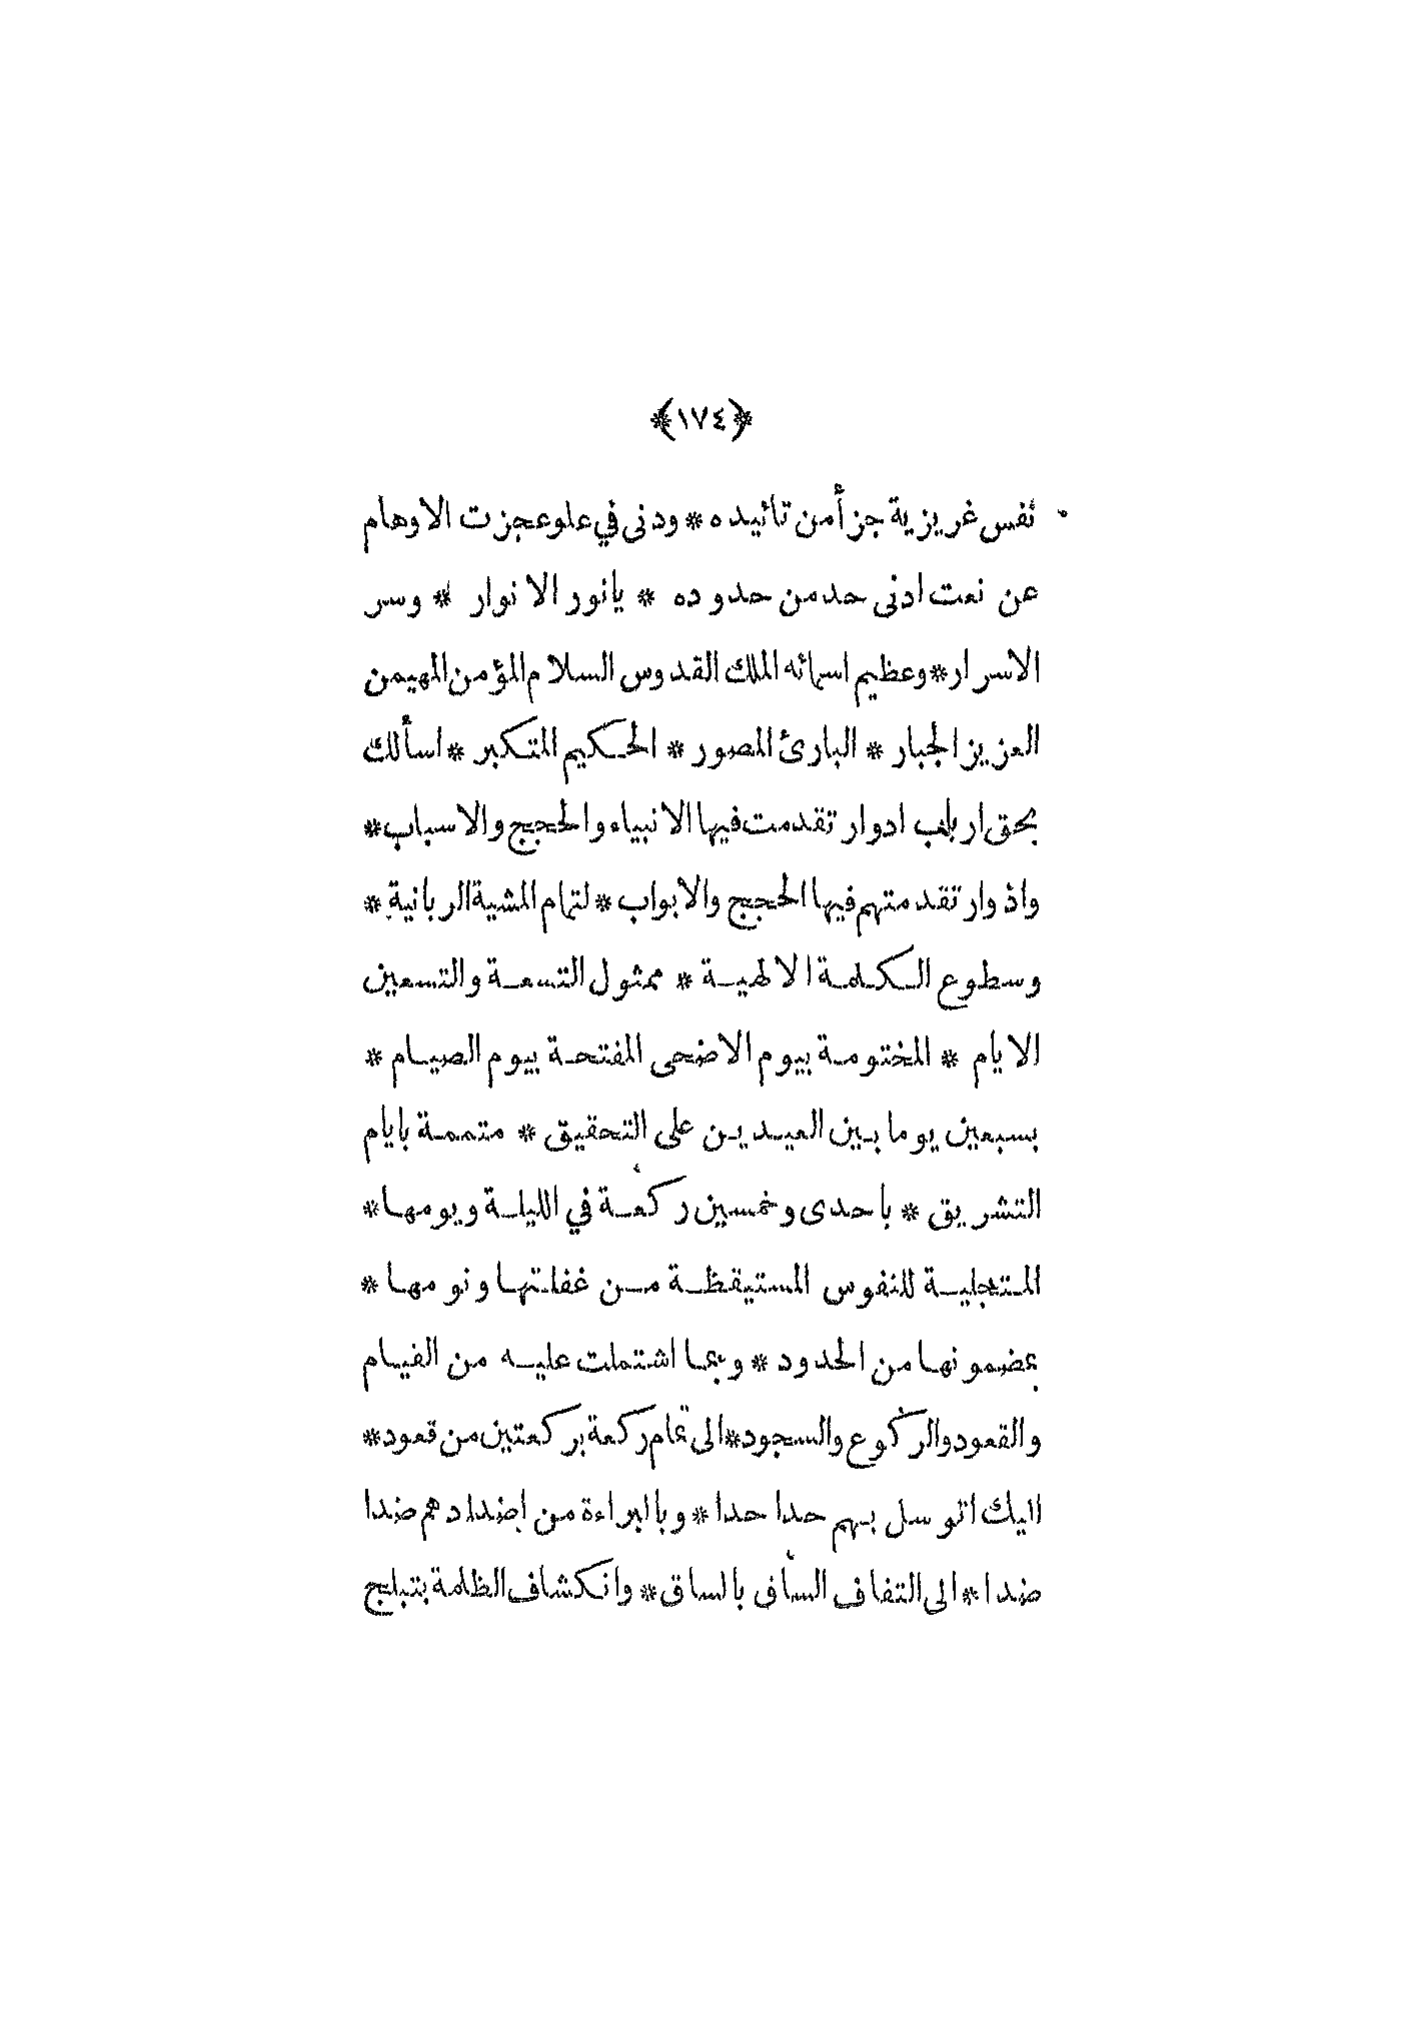 ﴿١٧٤﴾
نفس غريزية جزأ من تائيده * ودنى في علو عجزت الاوهام
عن نعت ادنى حد من حدوده * يانور الانوار * وسر
الاسرار * وعظيم اسمائه الملك القدوس السلام المؤمن المهيمن
العزيز الجبار * البارئ المصور * الحكيم المتكبر * اسألك
بحق ارباب ادوار تقدمت فيها الانبياء والحجج والاسباب *
واذوار تقدمتهم فيها الحجج والابواب * لتمام المشية الربانية *
وسطوع الكلمة الالهية * ممثول التسعة والتسعين
الايام * المختومة بيوم الاضحى المفتحة بيوم الصيام *
بسبعين يوما بين العيدين على التحقيق * متممة بايام
التشريق * باحدى وخمسين ركعة في الليلة ويومها *
المتجلية للنفوس المستيقظة من غفلتها ونومها *
بمضمونها من الحدود * وبما اشتملت عليه من القيام
والقعود والركوع والسجود * الى تمام ركعة بركعتين من قعود *
اليك اتوسل بهم حدا حدا * وبالبراءة من اضدادهم ضدا
ضدا * الى التفاف الساق بالساق * وانكشاف الظلمة بتبلج